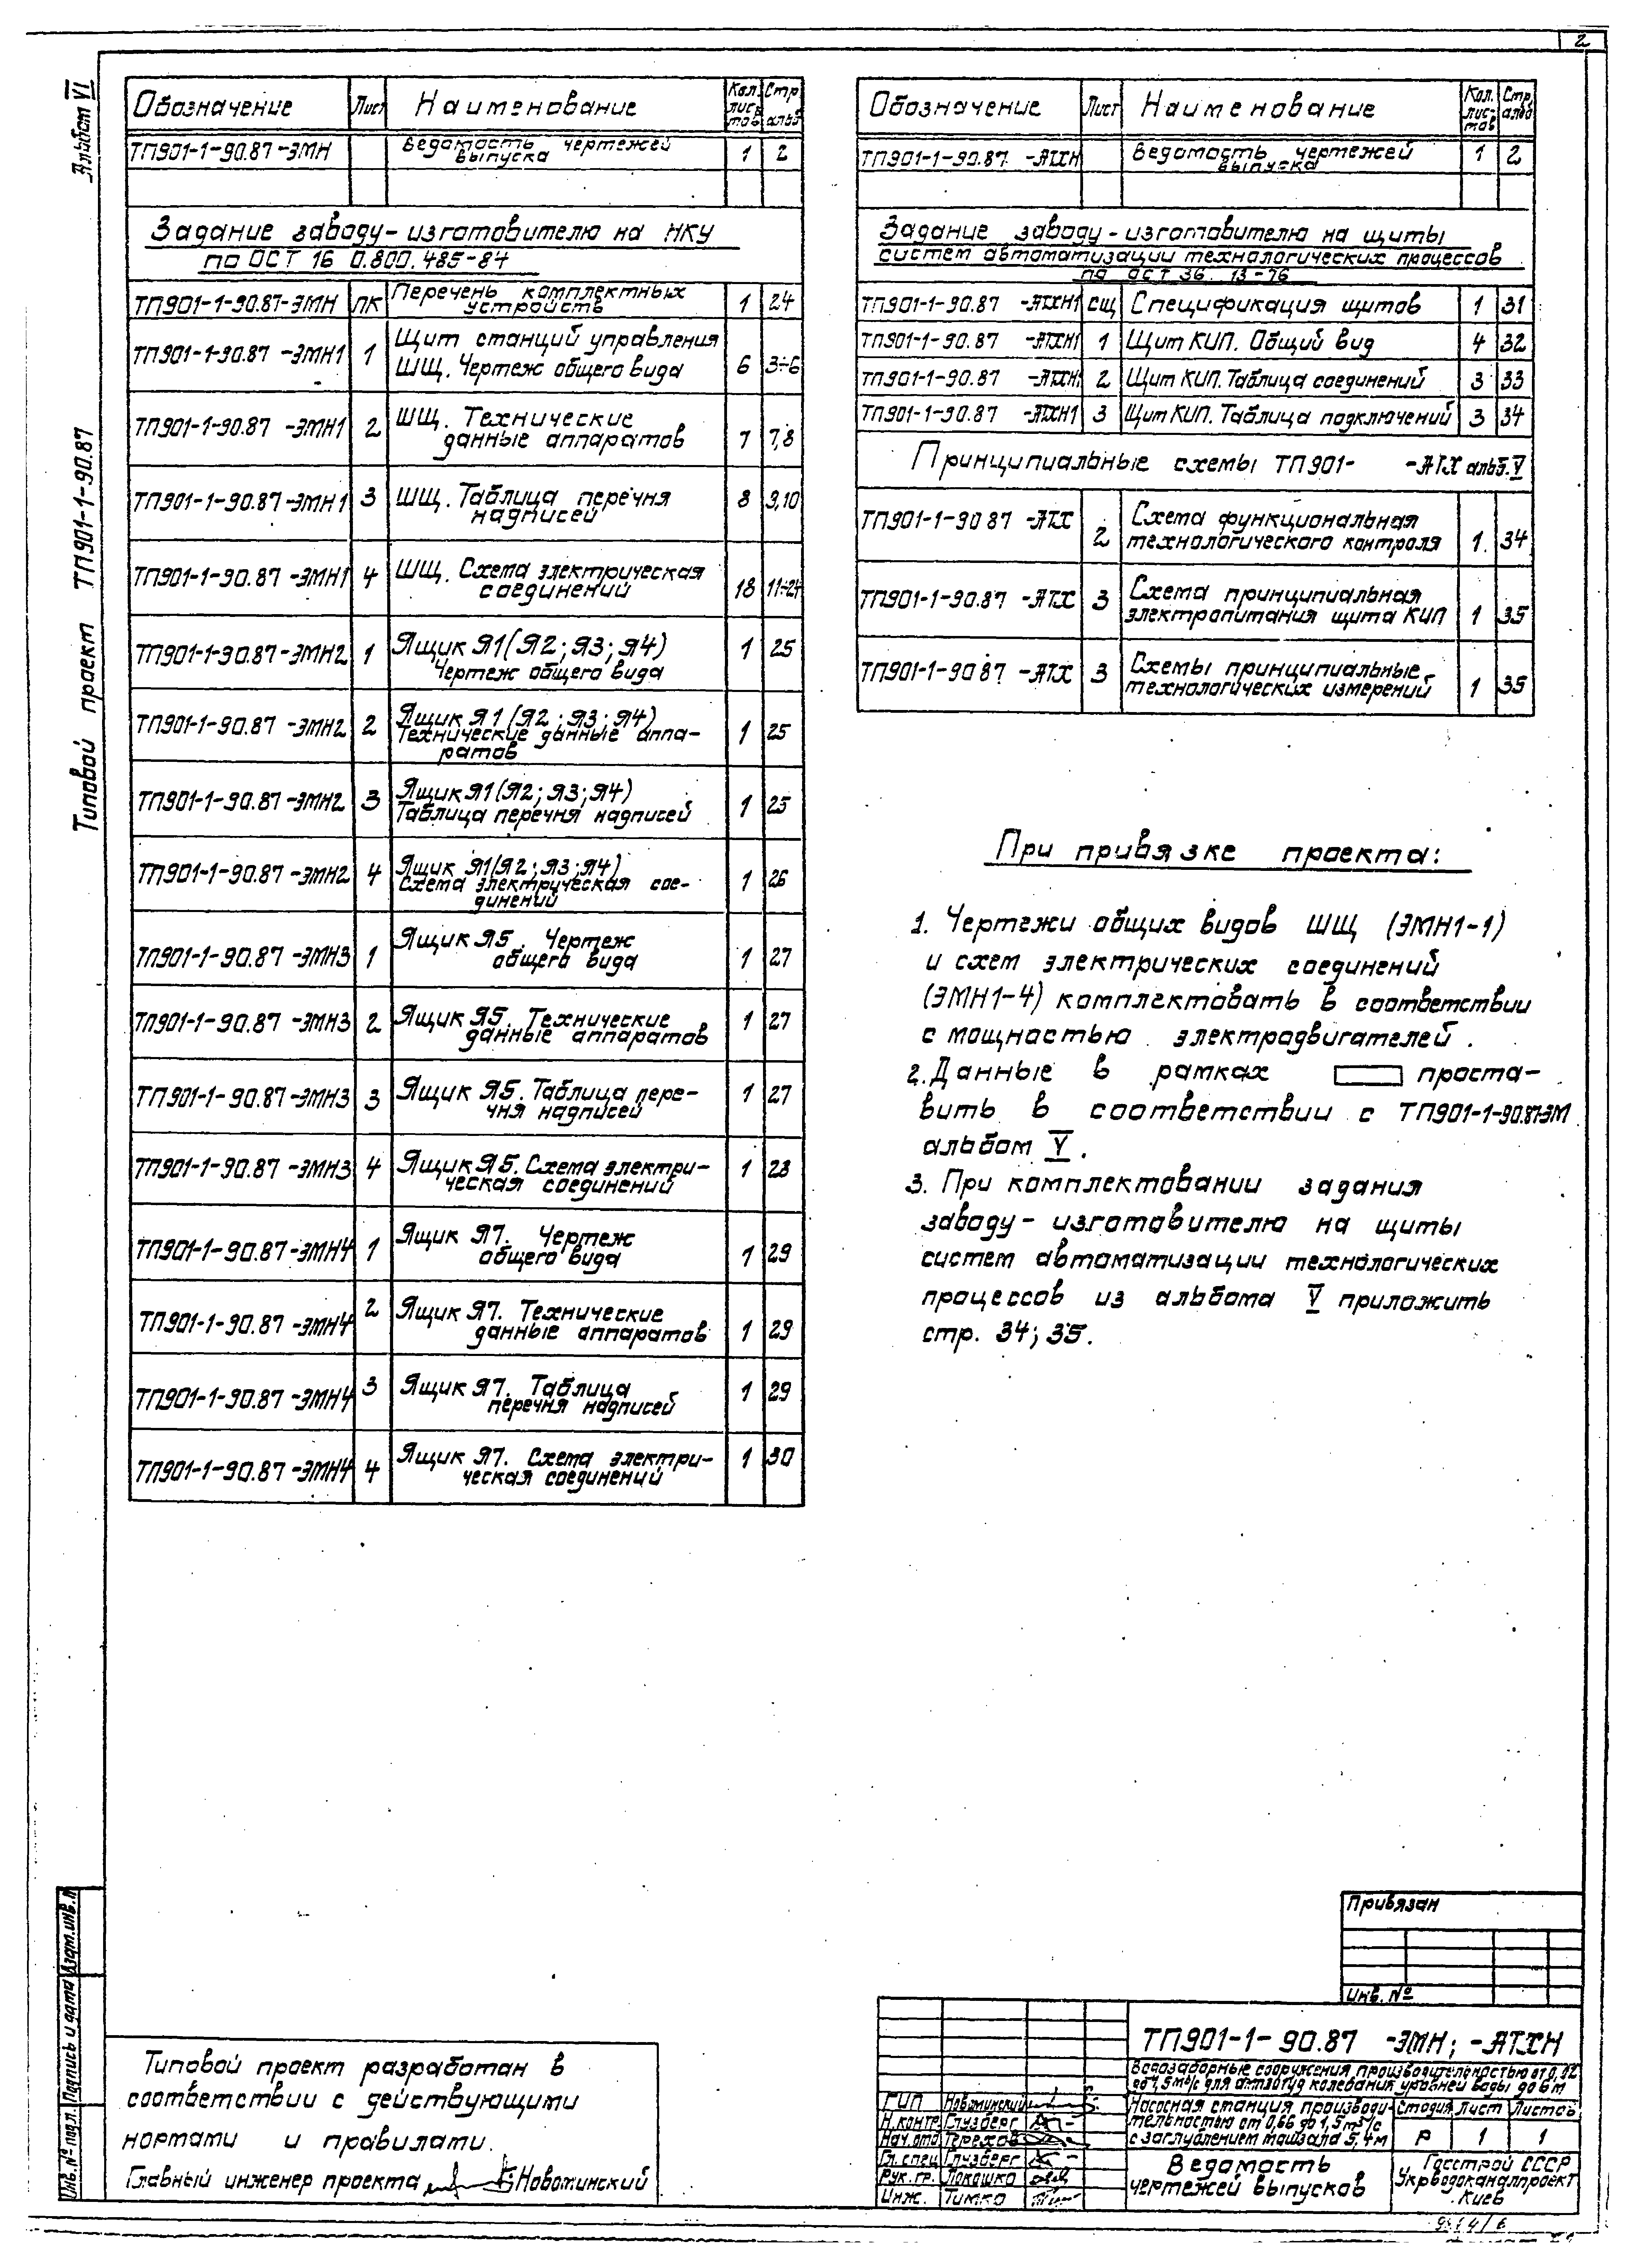 2
Альбом VI
Типовой проект ТП901-1-90.87
Обозначение Лист Наименование Кол. листов Стр. альб.
ТП901-1-90.87-ЭМН Ведомость чертежей выпуска 1 2
Задание заводу-изготовителю на НКУ
по ОСТ 16 0.800.485-84
ТП901-1-90.87-ЭМН ПК Перечень комплектных устройств 1 24
ТП901-1-90.87-ЭМН1 1 Щит станций управления ШЩ. Чертеж общего вида 6 3÷6
ТП901-1-90.87-ЭМН1 2 ШЩ. Технические данные аппаратов 7 7,8
ТП901-1-90.87-ЭМН1 3 ШЩ. Таблица перечня надписей 8 9,10
ТП901-1-90.87-ЭМН1 4 ШЩ. Схема электрическая соединений 18 11÷24
ТП901-1-90.87-ЭМН2 1 Ящик Я1(Я2;Я3;Я4) Чертеж общего вида 1 25
ТП901-1-90.87-ЭМН2 2 Ящик Я1(Я2;Я3;Я4) Технические данные аппаратов 1 25
ТП901-1-90.87-ЭМН2 3 Ящик Я1(Я2;Я3;Я4) Таблица перечня надписей 1 25
ТП901-1-90.87-ЭМН2 4 Ящик Я1(Я2;Я3;Я4) Схема электрическая соединений 1 26
ТП901-1-90.87-ЭМН3 1 Ящик Я5. Чертеж общего вида 1 27
ТП901-1-90.87-ЭМН3 2 Ящик Я5. Технические данные аппаратов 1 27
ТП901-1-90.87-ЭМН3 3 Ящик Я5. Таблица перечня надписей 1 27
ТП901-1-90.87-ЭМН3 4 Ящик Я5. Схема электрическая соединений 1 28
ТП901-1-90.87-ЭМН4 1 Ящик Я7. Чертеж общего вида 1 29
ТП901-1-90.87-ЭМН4 2 Ящик Я7. Технические данные аппаратов 1 29
ТП901-1-90.87-ЭМН4 3 Ящик Я7. Таблица перечня надписей 1 29
ТП901-1-90.87-ЭМН4 4 Ящик Я7. Схема электрическая соединений 1 30
Обозначение Лист Наименование Кол. листов Стр. альб
ТП901-1-90.87-АТХН Ведомость чертежей выпуска 1 2
Задание заводу-изготовителю на щиты
систем автоматизации технологических процессов
по ОСТ 36.13-76
ТП901-1-90.87-АТХН1 СЩ Спецификация щитов 1 31
ТП901-1-90.87-АТХН1 1 Щит КИП. Общий вид 4 32
ТП901-1-90.87-АТХН1 2 Щит КИП. Таблица соединений 3 33
ТП901-1-90.87-АТХН1 3 Щит КИП. Таблица подключений 3 34
Принципиальные схемы ТП901- -АТХ альб. V
ТП901-1-90 87-АТХ 2 Схема функциональная технологического контроля 1. 34
ТП901-1-90.87-АТХ 3 Схема принципиальная электропитания щита КИП 1 35
ТП901-1-90 87-АТХ 3 Схемы принципиальные технологических измерений 1 35
При привязке проекта:
1. Чертежи общих видов ШЩ (ЭМН1-1)
и схем электрических соединений
(ЭМН1-4) комплектовать в соответствии
с мощностью электродвигателей.
2. Данные в рамках проста-
вить в соответствии с ТП901-1-90.87-ЭМ
альбом V.
3. При комплектовании задания
заводу-изготовителю на щиты
систем автоматизации технологических
процессов из альбома V приложить
стр. 34; 35.
Привязан
Инв. №
ТП901-1-90.87 -ЭМН; -АТХН
Водозаборные сооружения производительностью от 0,02
до 1,5 м³/с для амплитуд колебания уровней воды до 6м
Насосная станция производи-
тельностью от 0,66 до 1,5 м³/с
с заглублением машзала 5,4м
Стадия Лист Листов
Р 1 1
Ведомость
чертежей выпусков
Госстрой СССР
Укрводоканалпроект
Киев
ГИП Новоминский
Н.контр. Глузберг
Нач.отд Терехов
Гл.спец Глузберг
Рук.гр. Локошко
Инж. Тимко
Типовой проект разработан в
соответствии с действующими
нормами и правилами.
Главный инженер проекта Новоминский
Инв.№ подл. Подпись и дата Взам.инв.№